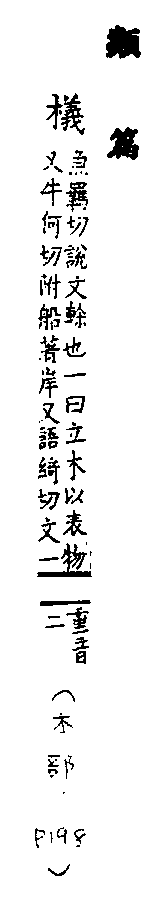 類篇
檥
魚羈切說文榦也一曰立木以表物
又牛何切附船著岸又語綺切文一
重音二
(木部.
P198)